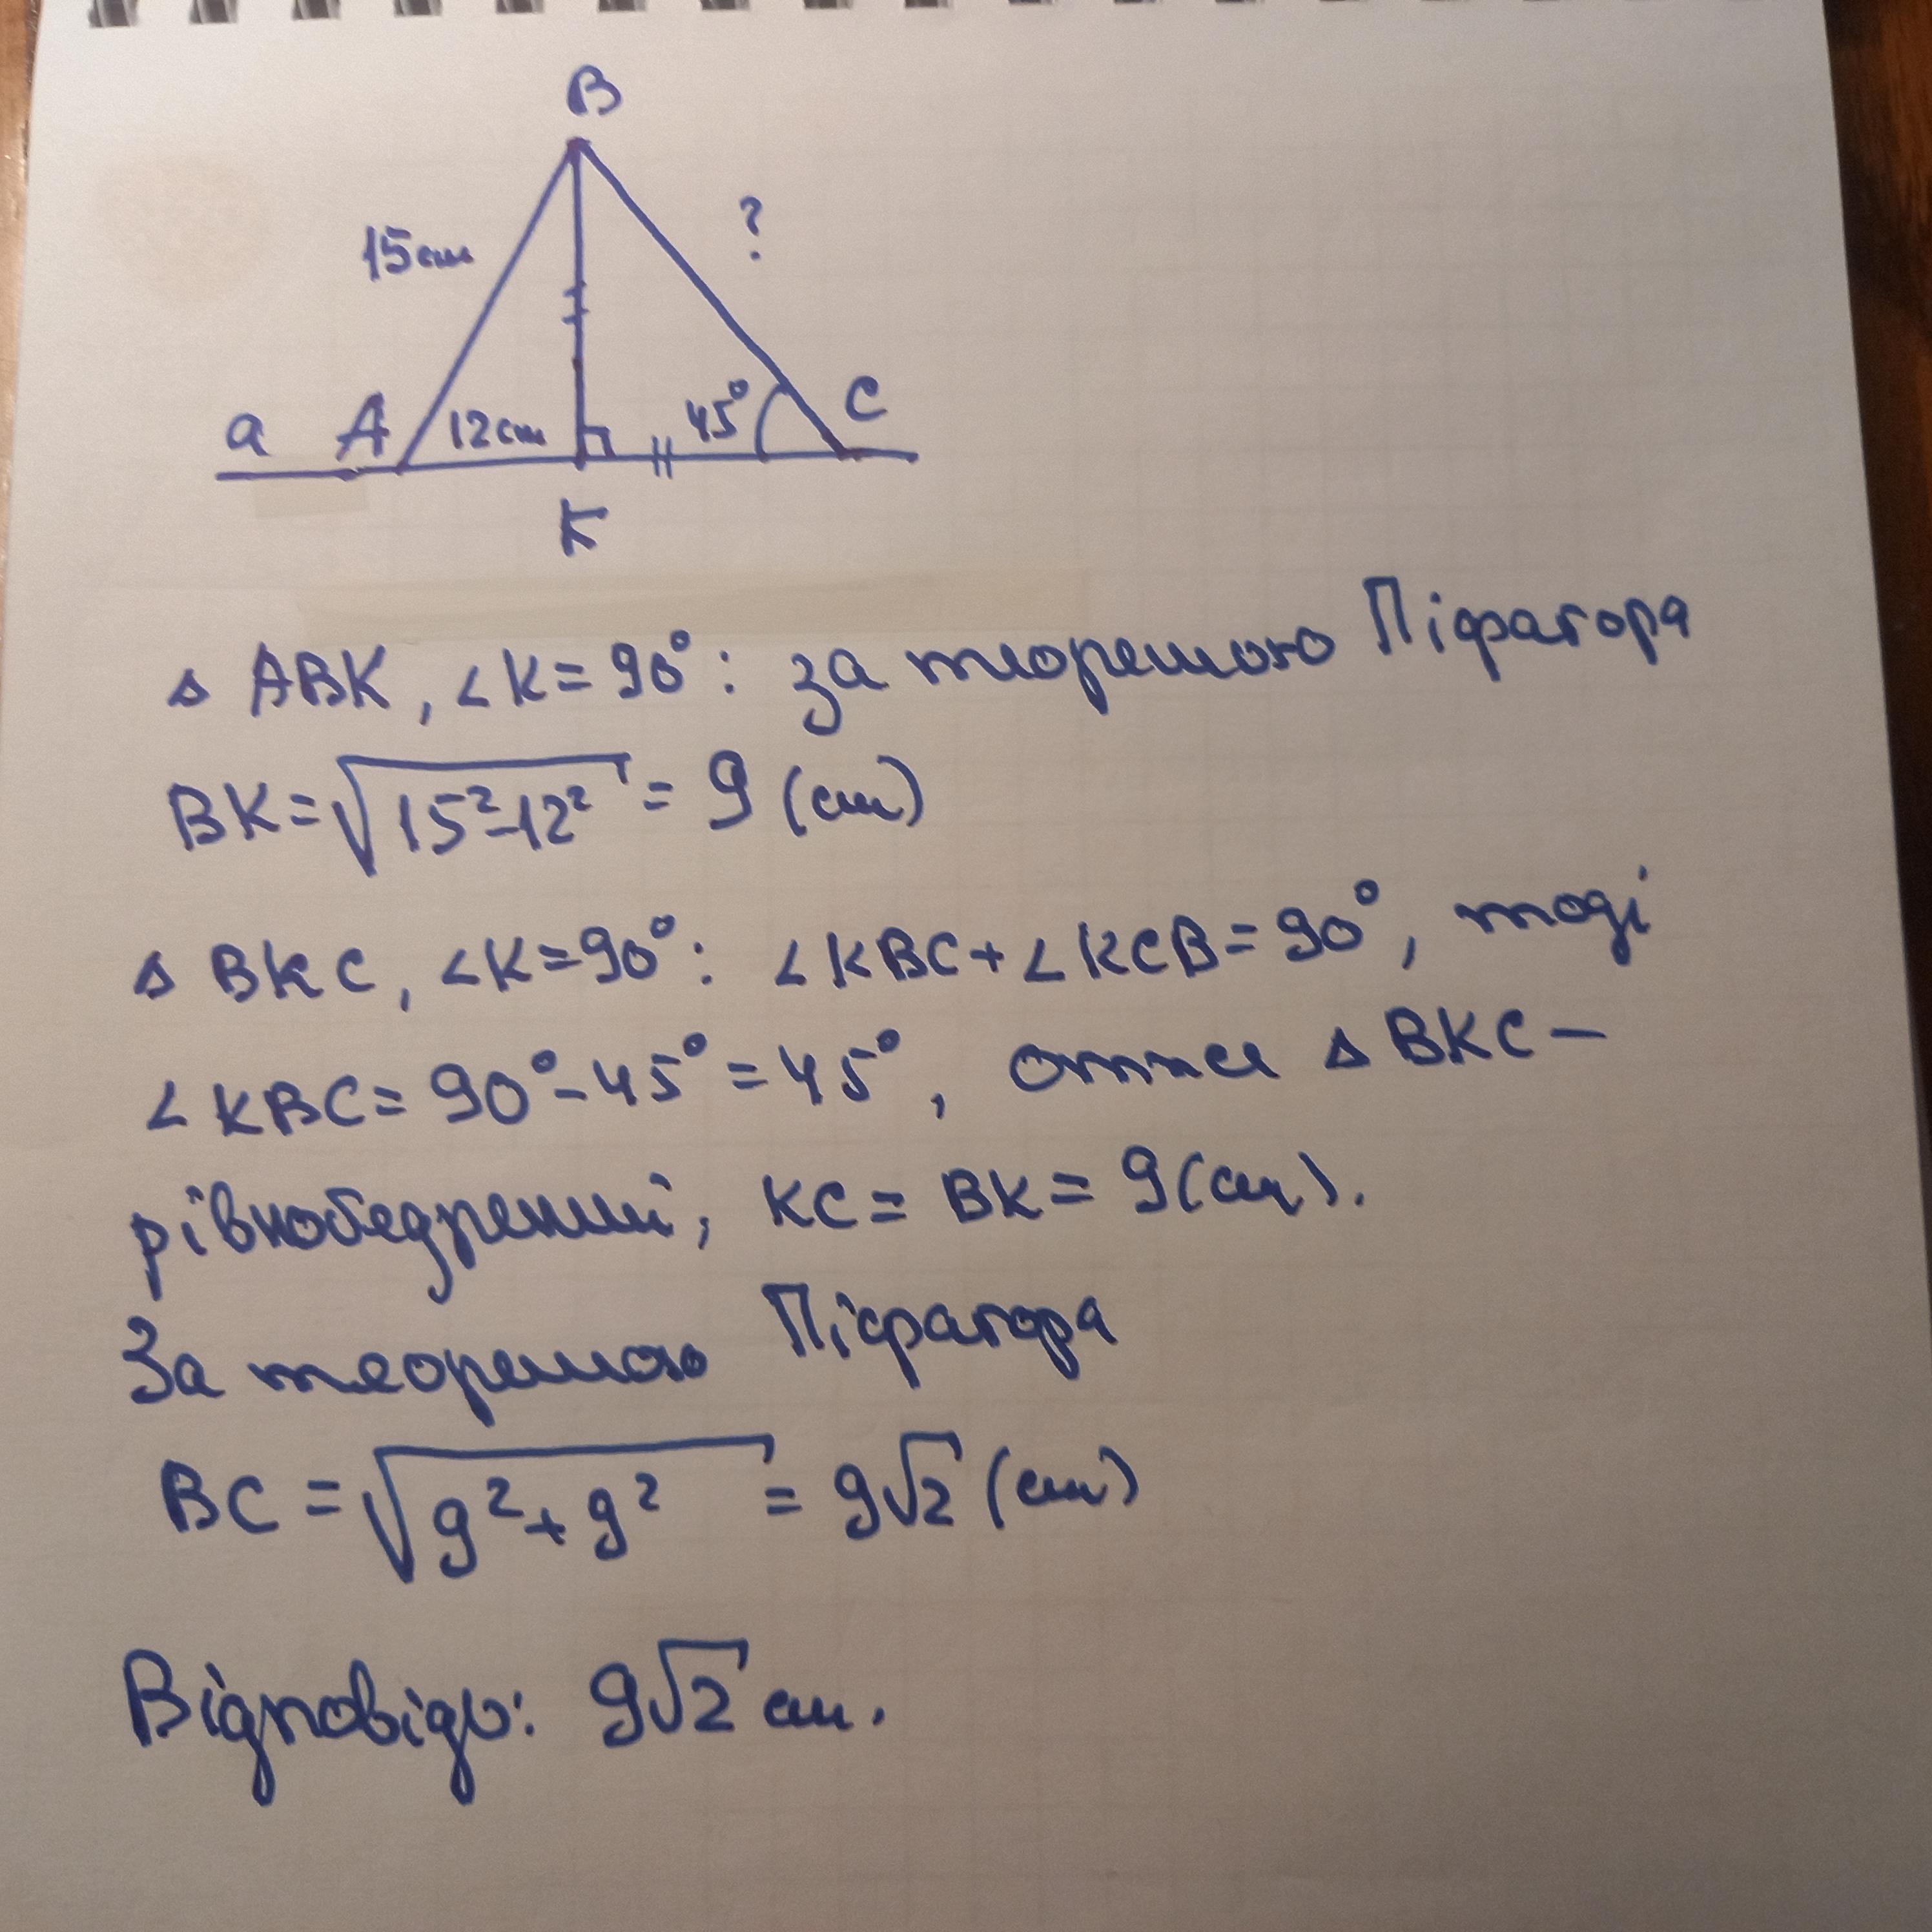 B
15см
?
a A 12см 45° C
K
△ ABK, ∠K=90°: за теоремою Піфагора
BK=√15²-12² = 9 (см)
△ BKC, ∠K=90°: ∠KBC+∠KCB=90°, тоді
∠KBC=90°-45°=45°, отже △ BKC –
рівнобедрений, KC= BK= 9(см).
За теоремою Піфагора
BC = √9²+9² = 9√2 (см)
Відповідь: 9√2 см.